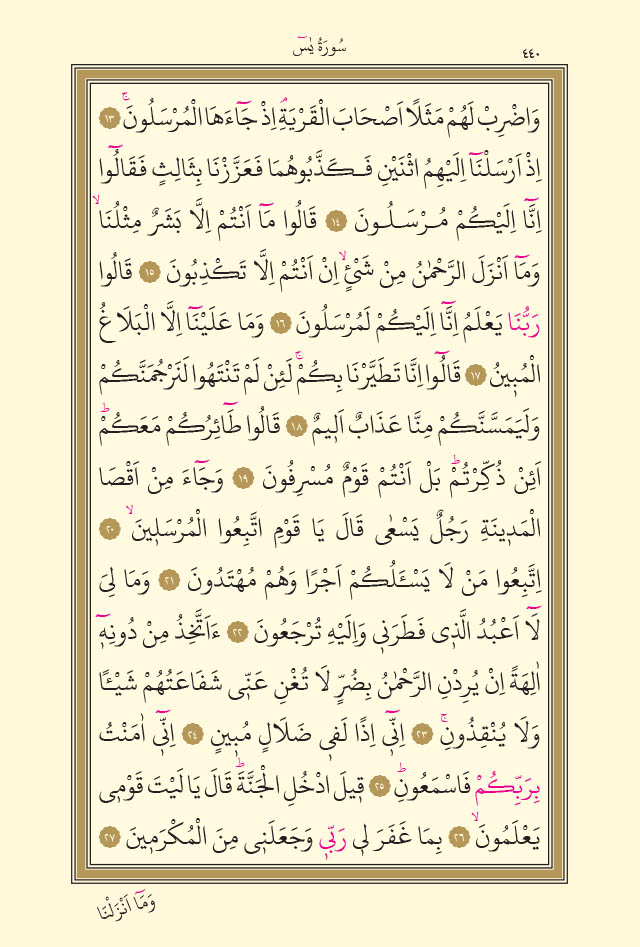 سُورَةُ يٰسٓ
٤٤٠
وَاضْرِبْ لَهُمْ مَثَلًا اَصْحَابَ الْقَرْيَةِۢ اِذْ جَٓاءَهَا الْمُرْسَلُونَۚ ﴿١٣﴾
اِذْ اَرْسَلْنَٓا اِلَيْهِمُ اثْنَيْنِ فَكَذَّبُوهُمَا فَعَزَّزْنَا بِثَالِثٍ فَقَالُٓوا
اِنَّٓا اِلَيْكُمْ مُرْسَلُونَ ﴿١٤﴾ قَالُوا مَٓا اَنْتُمْ اِلَّا بَشَرٌ مِثْلُنَاۙ
وَمَٓا اَنْزَلَ الرَّحْمٰنُ مِنْ شَيْءٍۙ اِنْ اَنْتُمْ اِلَّا تَكْذِبُونَ ﴿١٥﴾ قَالُوا
رَبُّنَا يَعْلَمُ اِنَّٓا اِلَيْكُمْ لَمُرْسَلُونَ ﴿١٦﴾ وَمَا عَلَيْنَٓا اِلَّا الْبَلَاغُ
الْمُب۪ينُ ﴿١٧﴾ قَالُٓوا اِنَّا تَطَيَّرْنَا بِكُمْۚ لَئِنْ لَمْ تَنْتَهُوا لَنَرْجُمَنَّكُمْ
وَلَيَمَسَّنَّكُمْ مِنَّا عَذَابٌ اَل۪يمٌ ﴿١٨﴾ قَالُوا طَٓائِرُكُمْ مَعَكُمْۜ
اَئِنْ ذُكِّرْتُمْۜ بَلْ اَنْتُمْ قَوْمٌ مُسْرِفُونَ ﴿١٩﴾ وَجَٓاءَ مِنْ اَقْصَا
الْمَد۪ينَةِ رَجُلٌ يَسْعٰى قَالَ يَا قَوْمِ اتَّبِعُوا الْمُرْسَل۪ينَۙ ﴿٢٠﴾
اِتَّبِعُوا مَنْ لَا يَسْـَٔلُكُمْ اَجْرًا وَهُمْ مُهْتَدُونَ ﴿٢١﴾ وَمَا لِيَ
لَٓا اَعْبُدُ الَّذ۪ي فَطَرَن۪ي وَاِلَيْهِ تُرْجَعُونَ ﴿٢٢﴾ ءَاَتَّخِذُ مِنْ دُونِه۪ٓ
اٰلِهَةً اِنْ يُرِدْنِ الرَّحْمٰنُ بِضُرٍّ لَا تُغْنِ عَنّ۪ي شَفَاعَتُهُمْ شَيْـًٔا
وَلَا يُنْقِذُونِۚ ﴿٢٣﴾ اِنّ۪ٓي اِذًا لَف۪ي ضَلَالٍ مُب۪ينٍ ﴿٢٤﴾ اِنّ۪ٓي اٰمَنْتُ
بِرَبِّكُمْ فَاسْمَعُونِۜ ﴿٢٥﴾ ق۪يلَ ادْخُلِ الْجَنَّةَۜ قَالَ يَا لَيْتَ قَوْم۪ي
يَعْلَمُونَۙ ﴿٢٦﴾ بِمَا غَفَرَ ل۪ي رَبّ۪ي وَجَعَلَن۪ي مِنَ الْمُكْرَم۪ينَ ﴿٢٧﴾
وَمَٓا اَنْزَلْنَا